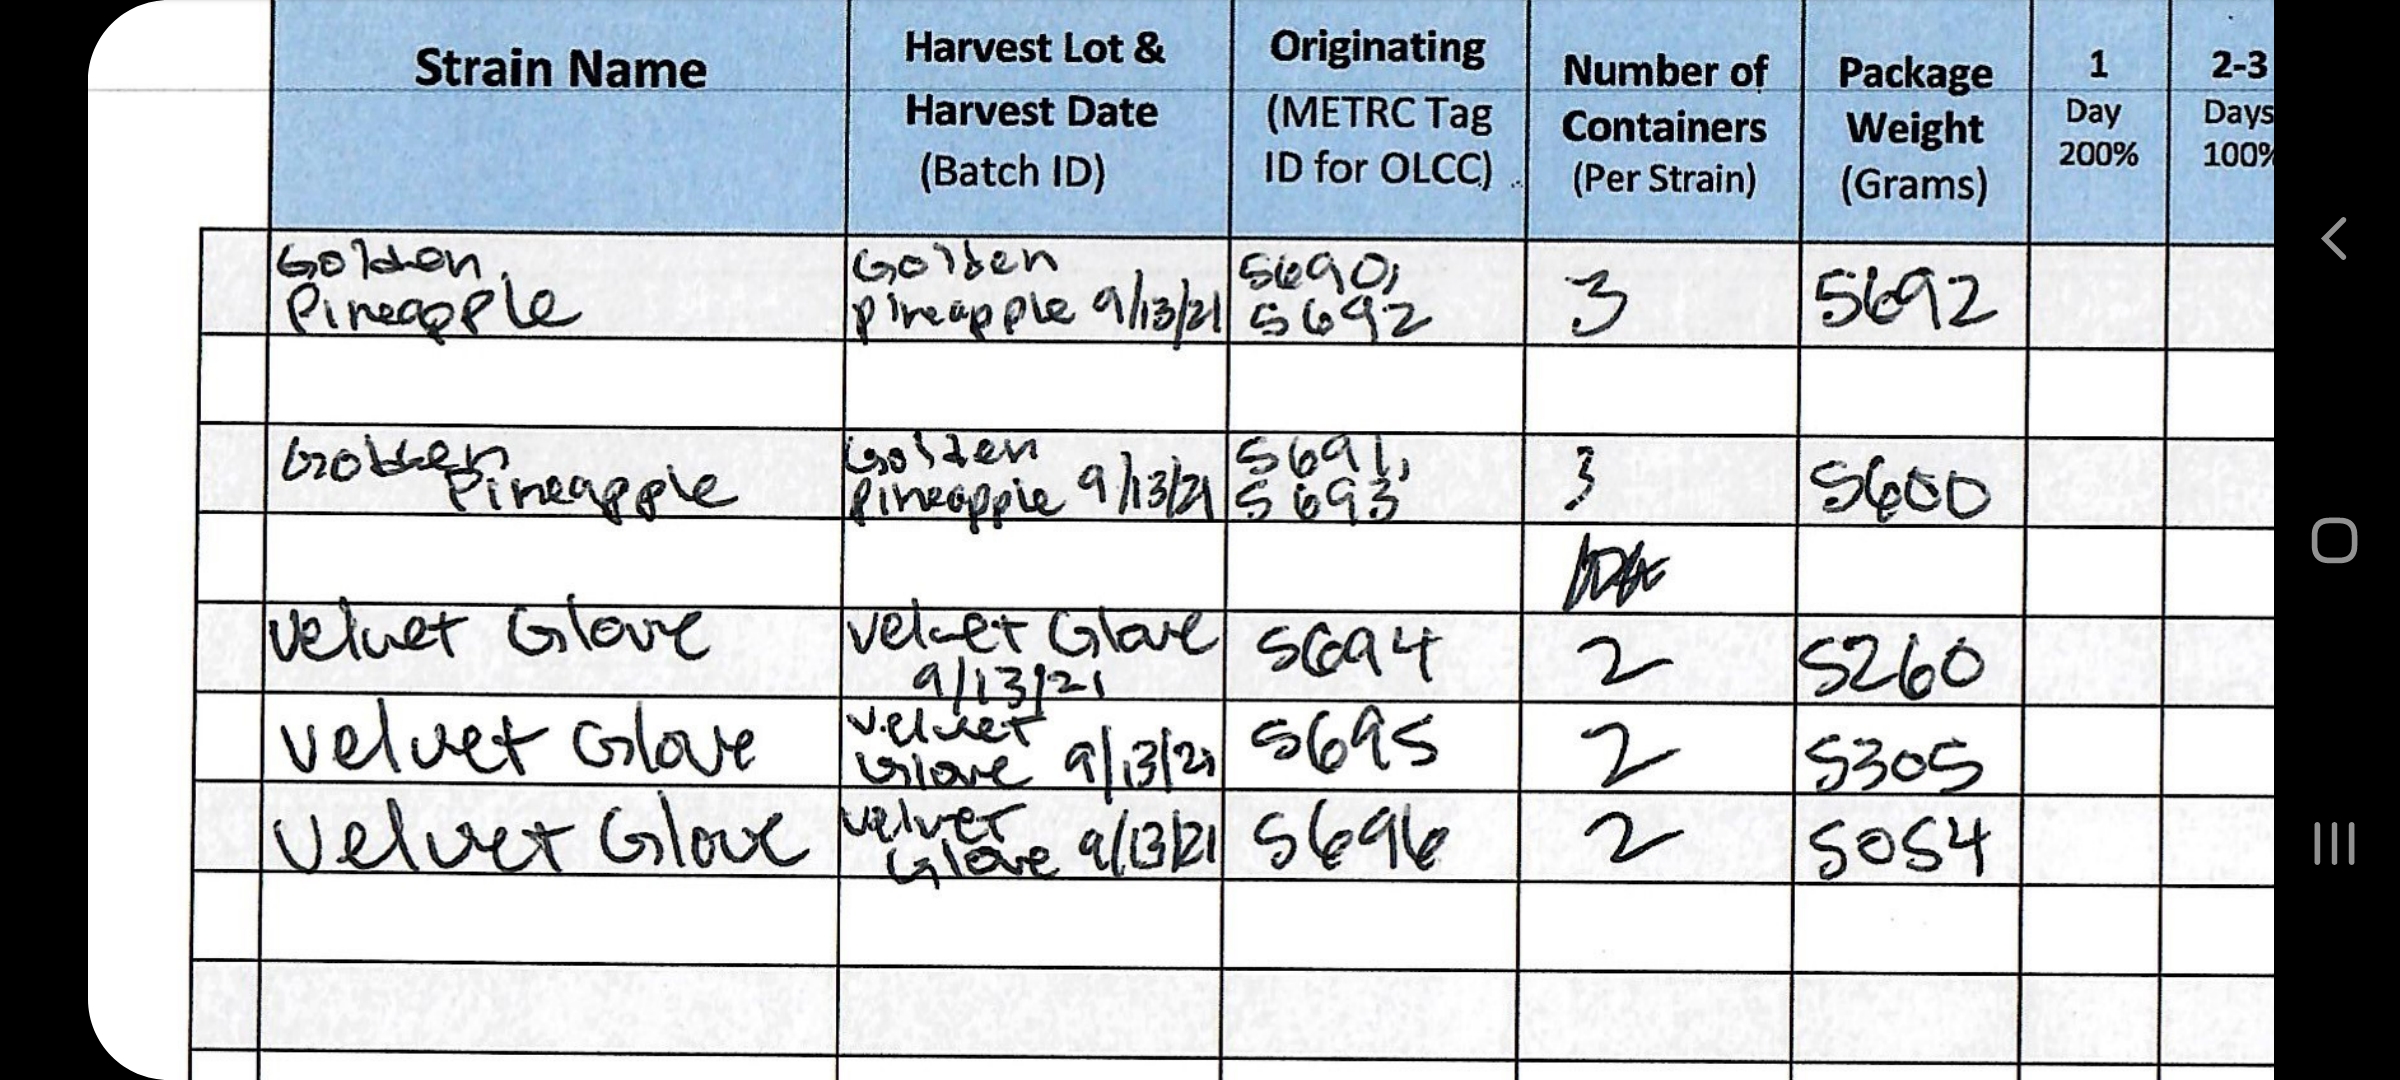 Strain Name
Harvest Lot &
Harvest Date
(Batch ID)
Originating
(METRC Tag
ID for OLCC)
Number of
Containers
(Per Strain)
Package
Weight
(Grams)
1
Day
200%
2-3
Days
100%
Golden
Pineapple
Golden
pineapple 9/13/21
5690,
5692
3
5692
Golden
Pineapple
Golden
Pineapple 9/13/21
5691,
5693
3
5600
Velvet Glove
Velvet Glove
9/13/21
5694
2
5260
Velvet Glove
Velvet
Glove 9/13/21
5695
2
5305
Velvet Glove
Velvet
Glove 9/13/21
5696
2
5054